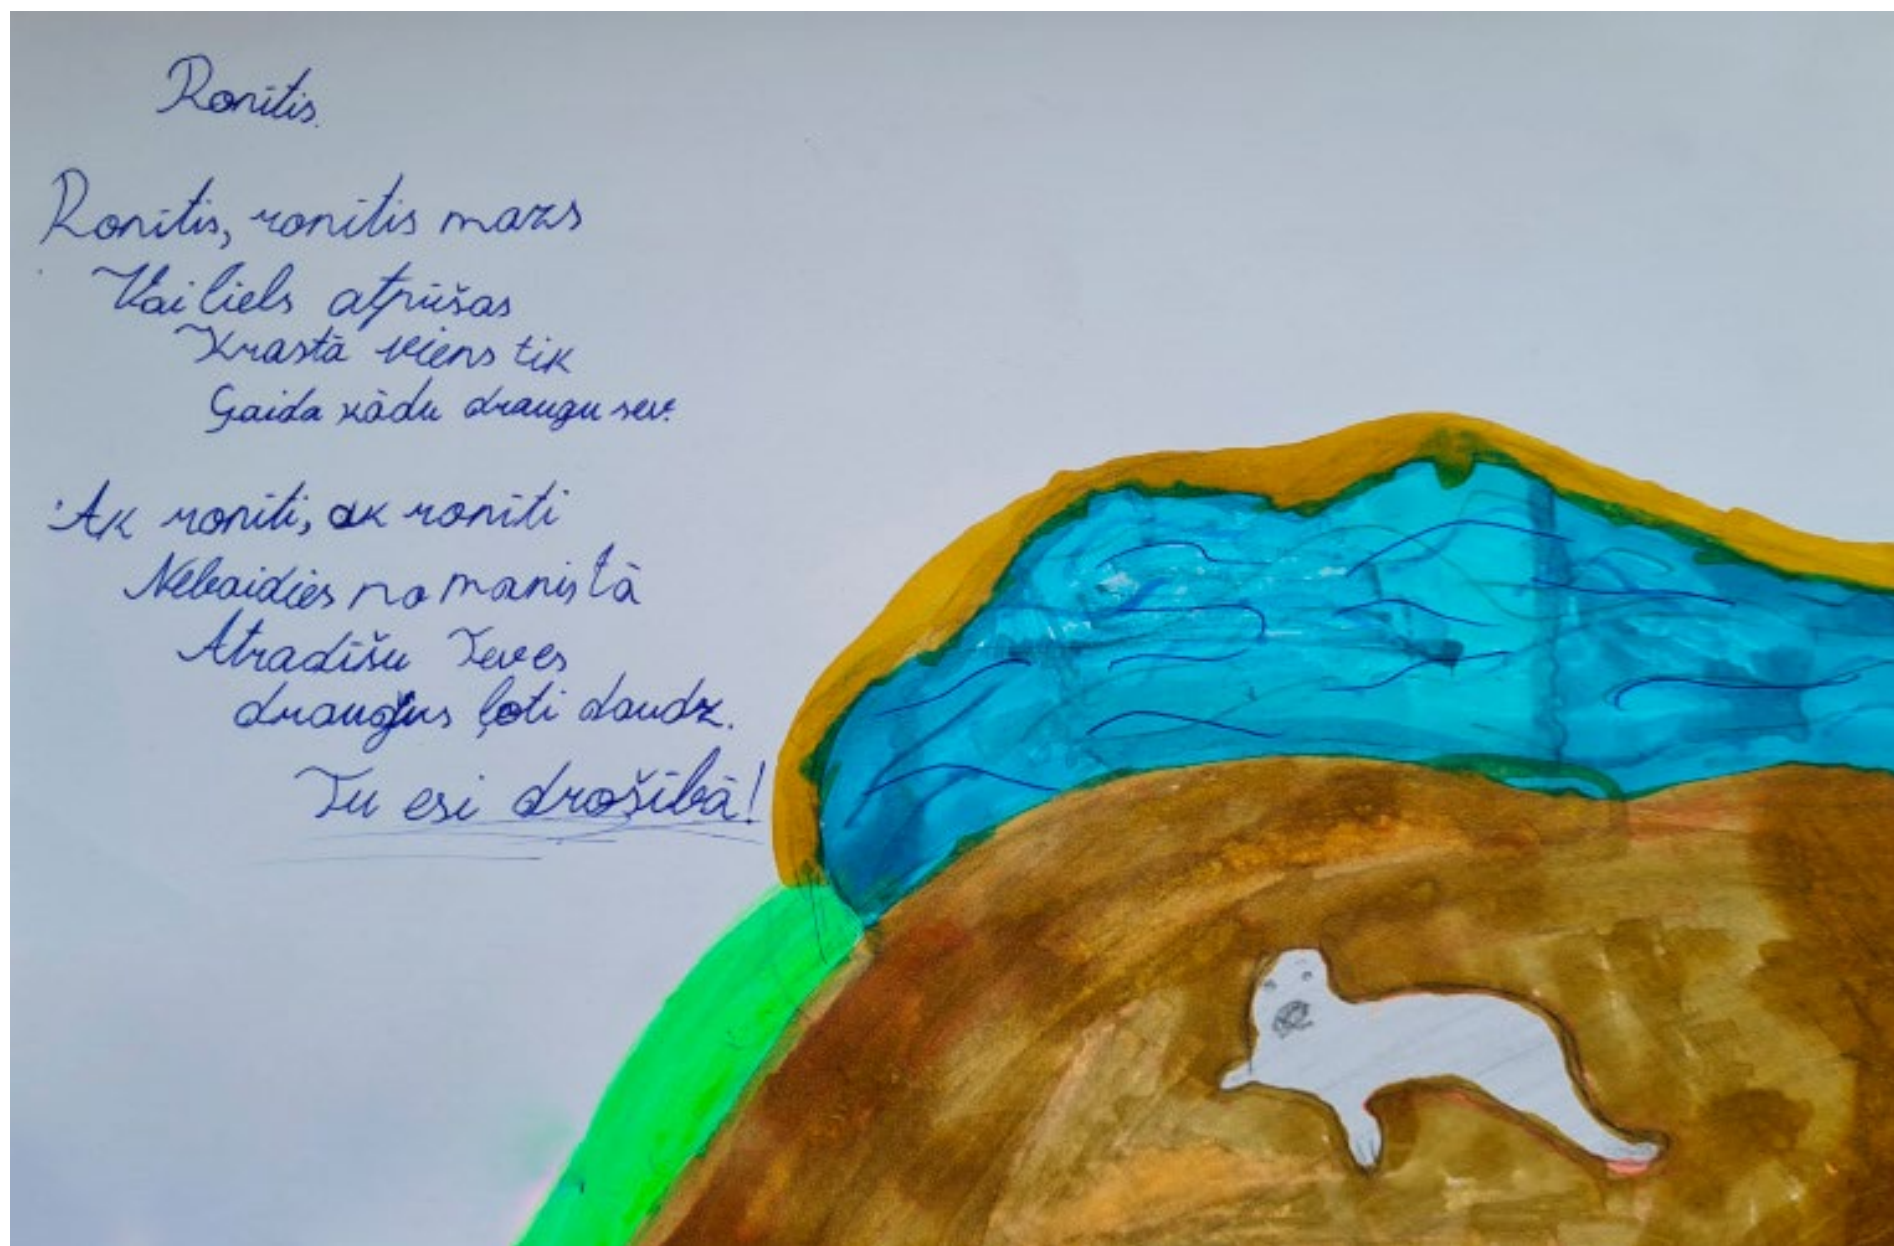 Ronītis.
Ronītis, ronītis mazs
Vai liels atpūšas
Krastā viens tik
Gaida kādu draugu sev.
Ak ronīti, ak ronīti
Nebaidies no manis tā
Atradīšu Teves
draugus ļoti daudz.
Tu esi drošībā!